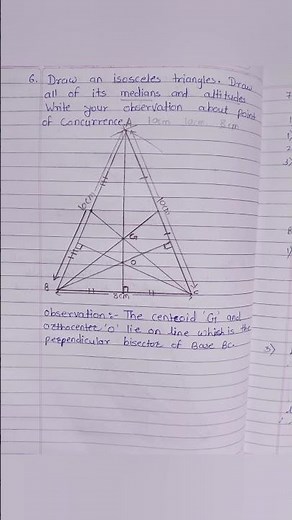 6. Draw an isosceles triangles. Draw
all of its medians and altitudes
Write your observation about point
of Concurrence. 10cm 10cm 8cm
A
10cm
10cm
G
O
B
C
8cm
observation:- The centroid 'G' and
orthocentre 'O' lie on line which is the
perpendicular bisector of Base BC.
3)